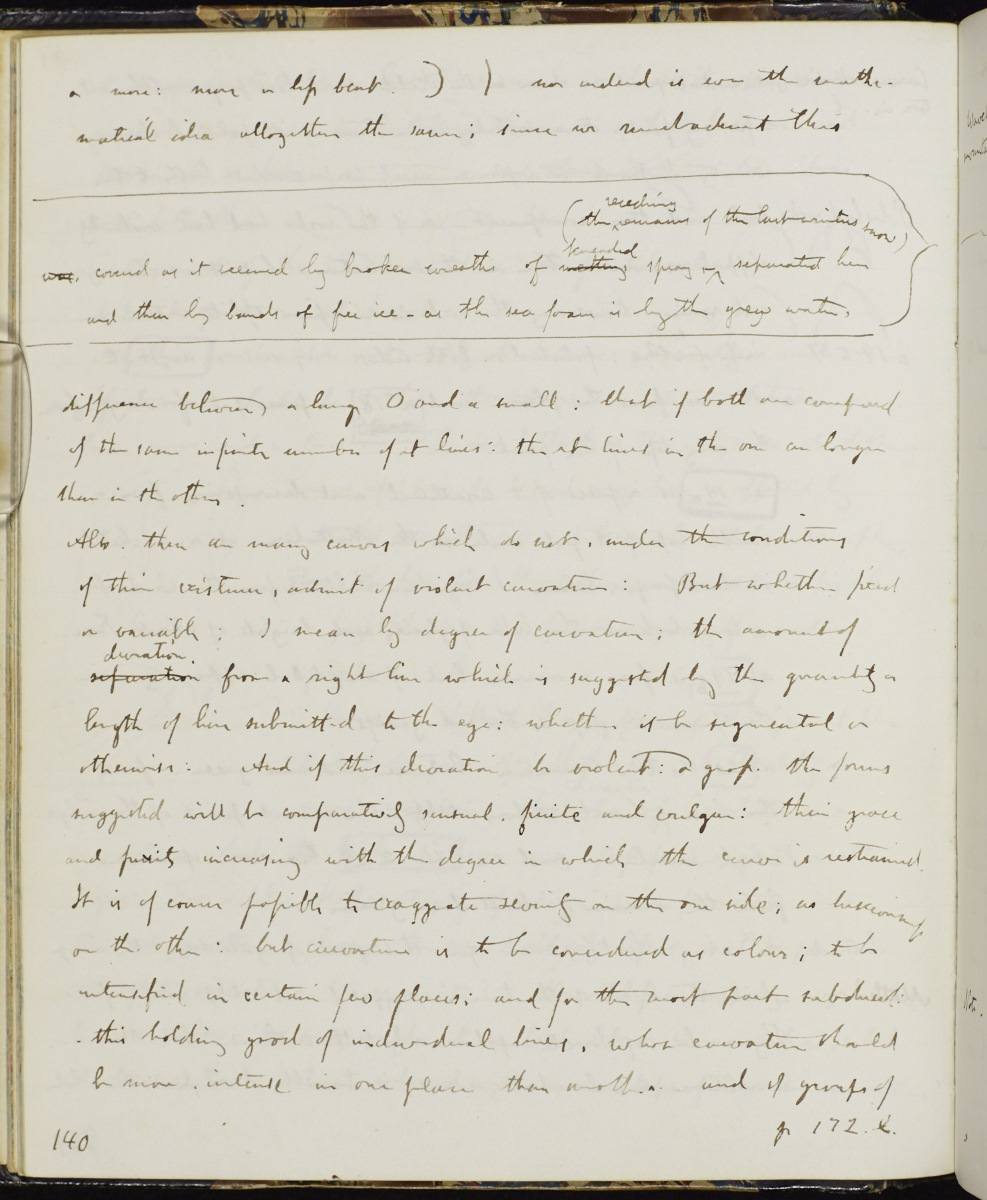 or more: more or less bent. ) ) nor indeed is even the mathe-
matical idea altogether the same; since we must admit this
receding
(the remains of the last winters snow)
kneaded
was, covered as it seemed by broken wreaths of melting spray separated here
and there by bands of free ice - as the sea foam is by the grey water,
difference between a large O and a small: that if both are composed
of the same infinite number of st lines: the st lines in the one are longer
than in the other.
Also. there are many curves which do not, under the conditions
of their existence, admit of violent curvature: But whether fixed
or variable; I mean by degree of curvature; the amount of
deviation.
separation from a right line which is suggested by the quantity or
length of line submitted to the eye: whether it be segmental or
otherwise: And if this deviation be violent: the forms
suggested will be comparatively sensual, finite and vulgar: their grace
and purity increasing with the degree in which the curve is restrained.
It is of course possible to exaggerate severity on the one side; as lusciousness
on the other: but curvature is to be considered as colour; to be
intensified in certain few places; and for the most part subdued:
this holding good of individual lines, whose curvature should
be more intense in one place than another. and of groups of
p 172.
140